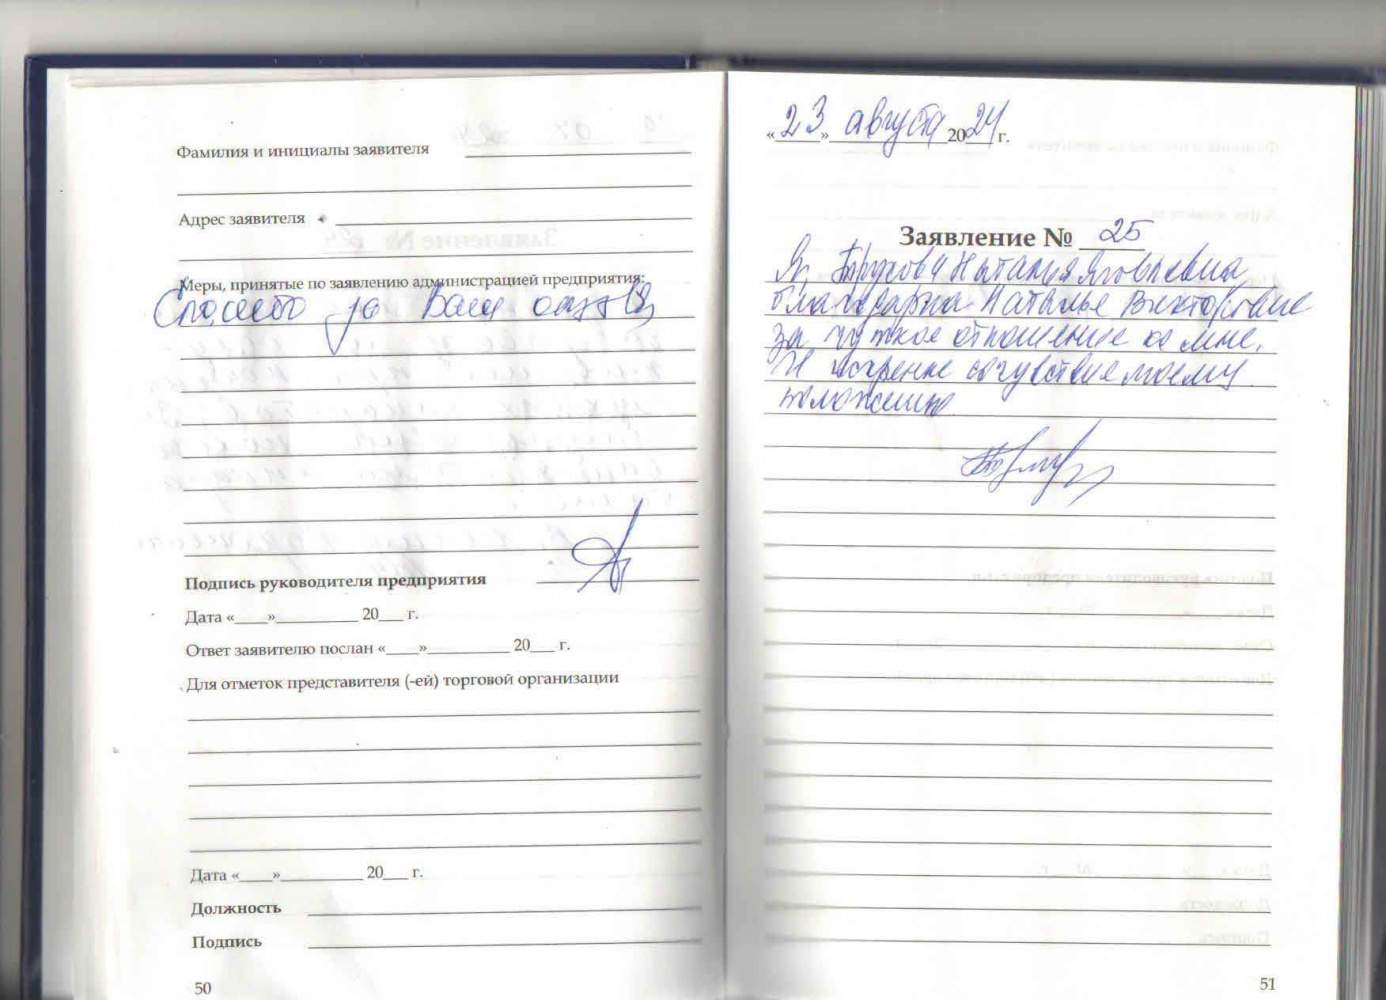 Фамилия и инициалы заявителя
Адрес заявителя
Меры, принятые по заявлению администрацией предприятия:
Спасибо за Ваш отзыв
Подпись руководителя предприятия
Дата «____»__________ 20___ г.
Ответ заявителю послан «____»__________ 20___ г.
Для отметок представителя (-ей) торговой организации
Дата «____»__________ 20___ г.
Должность
Подпись
50
«23» августа 2024 г.
Заявление № 25
Я, Наталия Яковлевна
благодарна Наталье Викторовне
за чуткое отношение ко мне.
И искренне сочувствие моему
положению
51